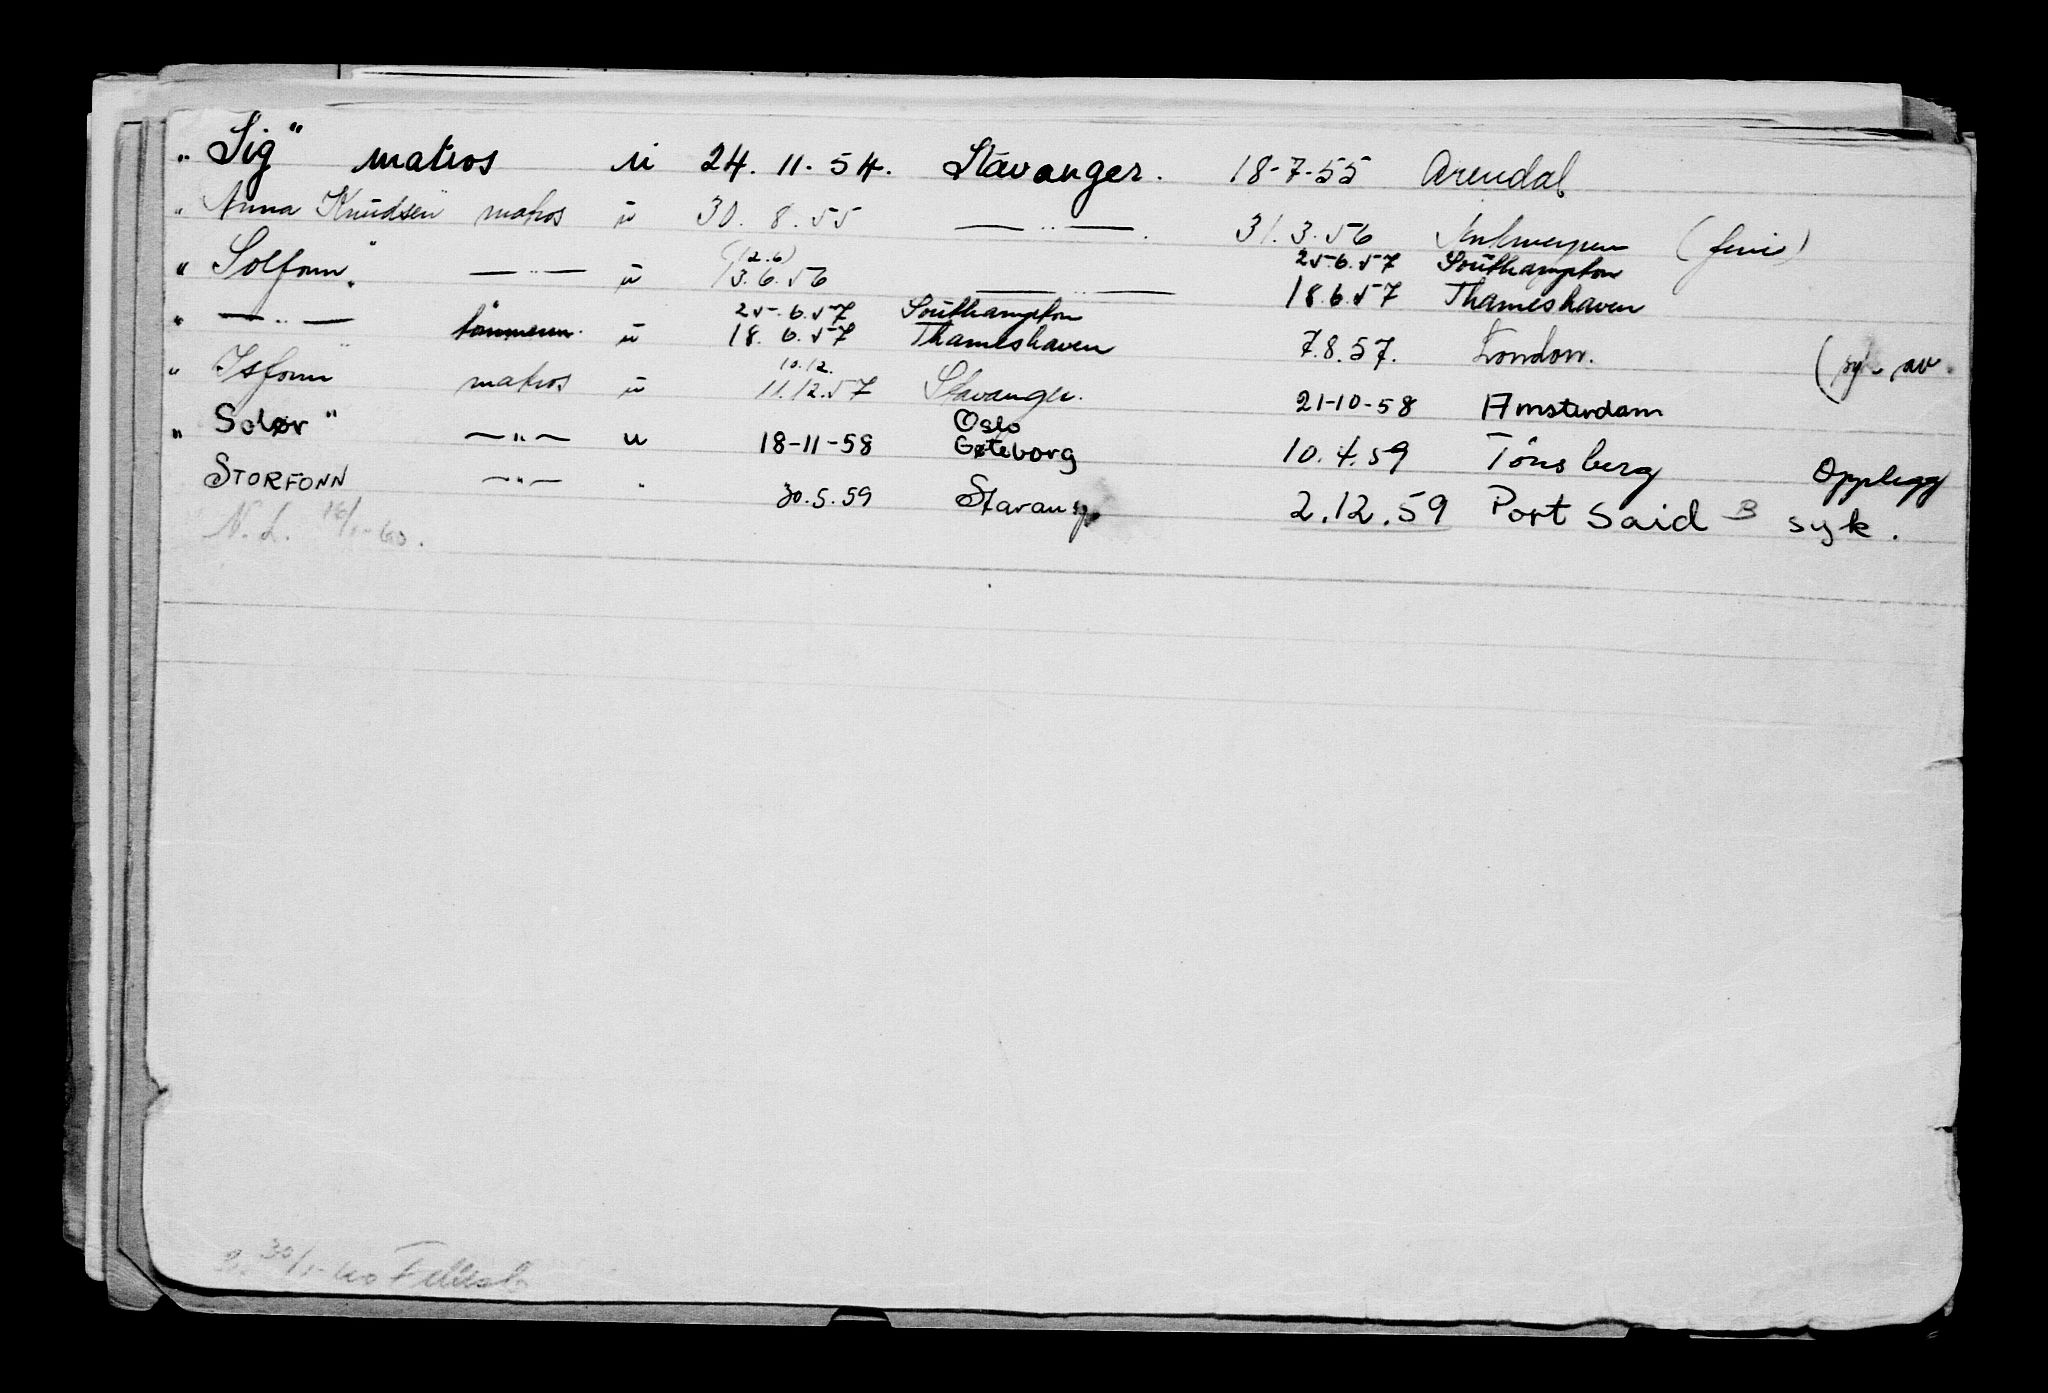 „ Sig" matros u 24. 11. 54. Stavanger. 18-7-55 Arendal
„ Anna Knudsen" matros u 30. 8. 55 — " — . 31. 3. 56 Antwerpen (ferie)
(2.6) 25.6.57 Southampton
„ Solfonn" — " — u 13.6.56 — " — 18.6.57 Thameshaven
25.6.57 Southampton
„ — " — tømmerm. u 18.6.57 Thameshaven 7.8.57. London. (syk av.
10.12.
„ Isfonn" matros u 11.12.57 Stavanger. 21-10-58 Amsterdam
Oslo
„ Solør" — " — u 18-11-58 Gøteborg 10.4.59 Tönsberg Opplegg
STORFONN — " — " 30.5.59 Stavang 2.12.59 Port Said B syk.
N.L. 16/1-60.
30/1-60